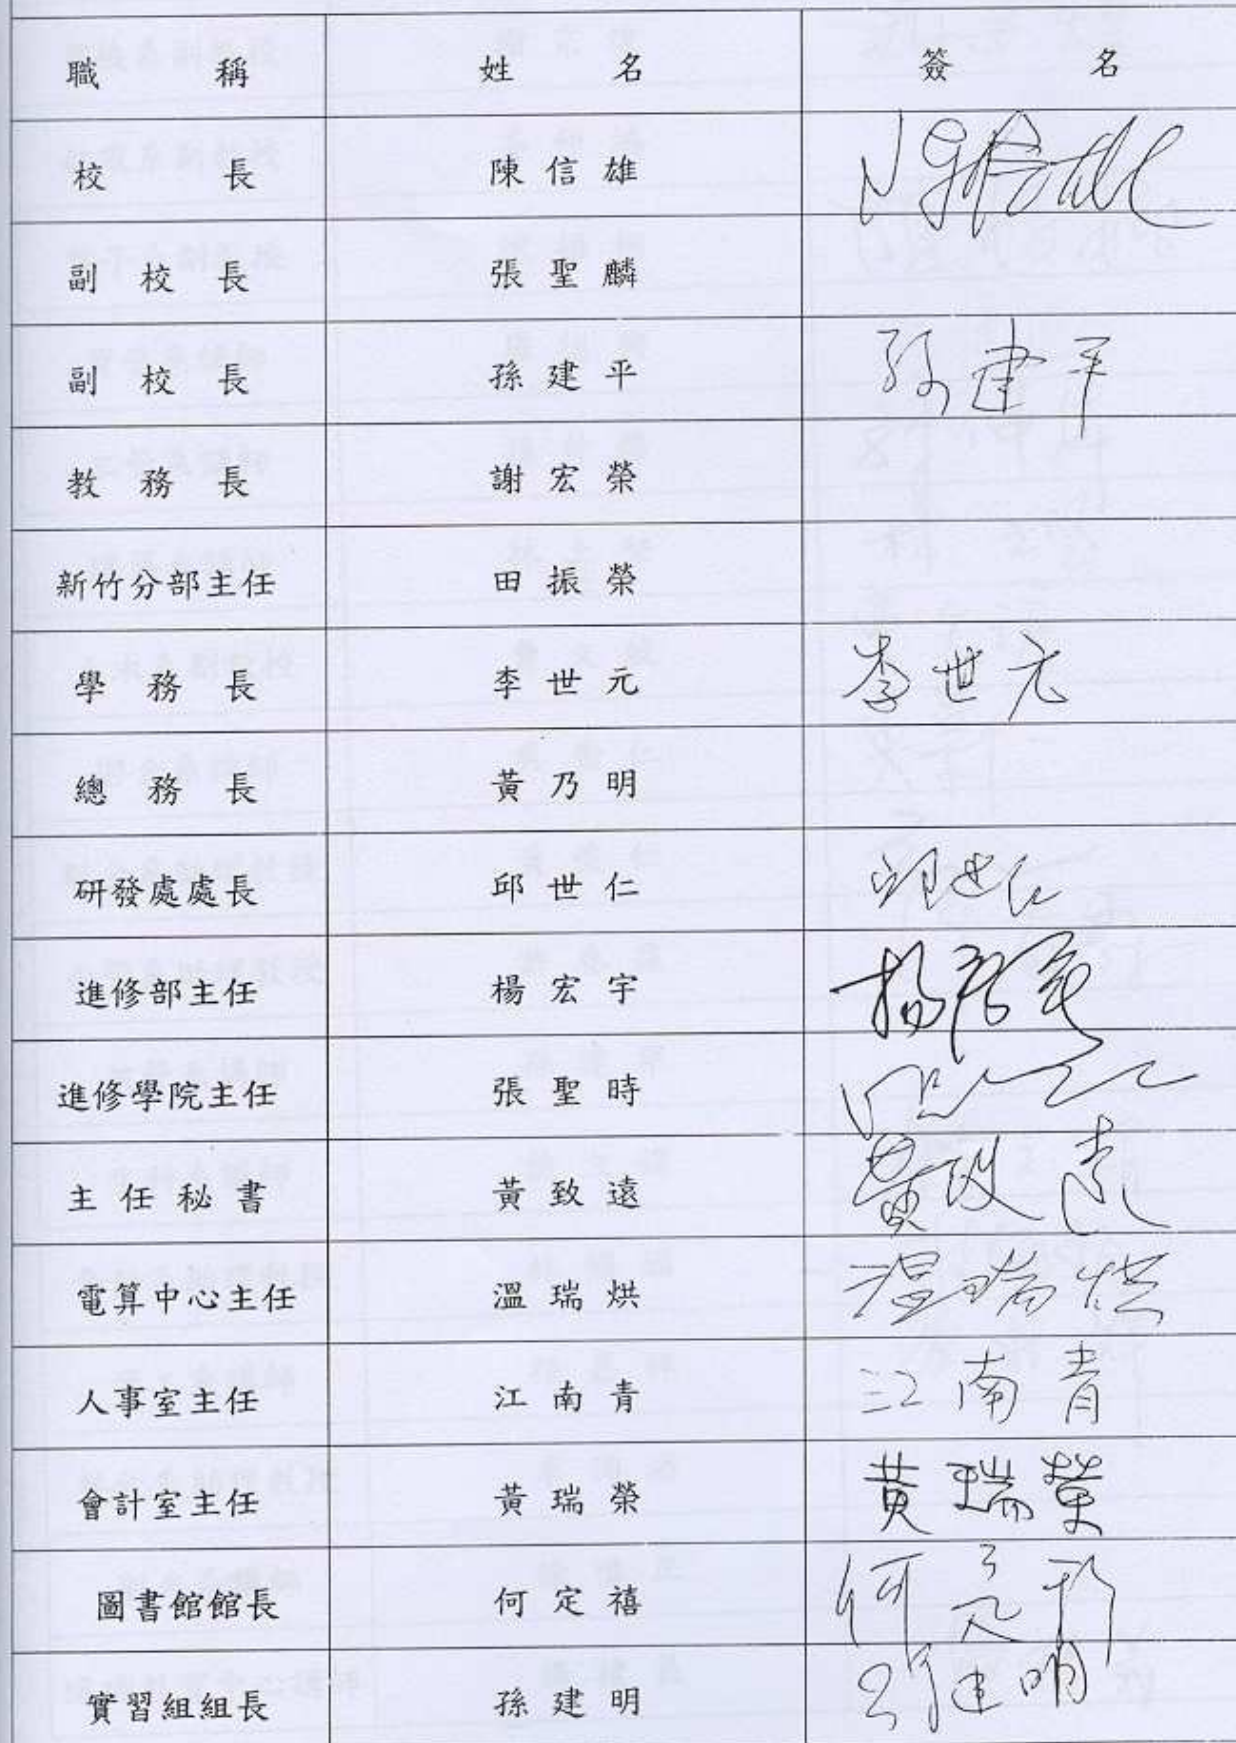 職稱 姓名 簽名
校長 陳信雄
副校長 張聖麟
副校長 孫建平 孫建平
教務長 謝宏榮
新竹分部主任 田振榮
學務長 李世元 李世元
總務長 黃乃明
研發處處長 邱世仁 邱世仁
進修部主任 楊宏宇
進修學院主任 張聖時
主任秘書 黃致遠 黃致遠
電算中心主任 溫瑞烘 溫瑞烘
人事室主任 江南青 江南青
會計室主任 黃瑞榮 黃瑞榮
圖書館館長 何定禧
實習組組長 孫建明 孫建明